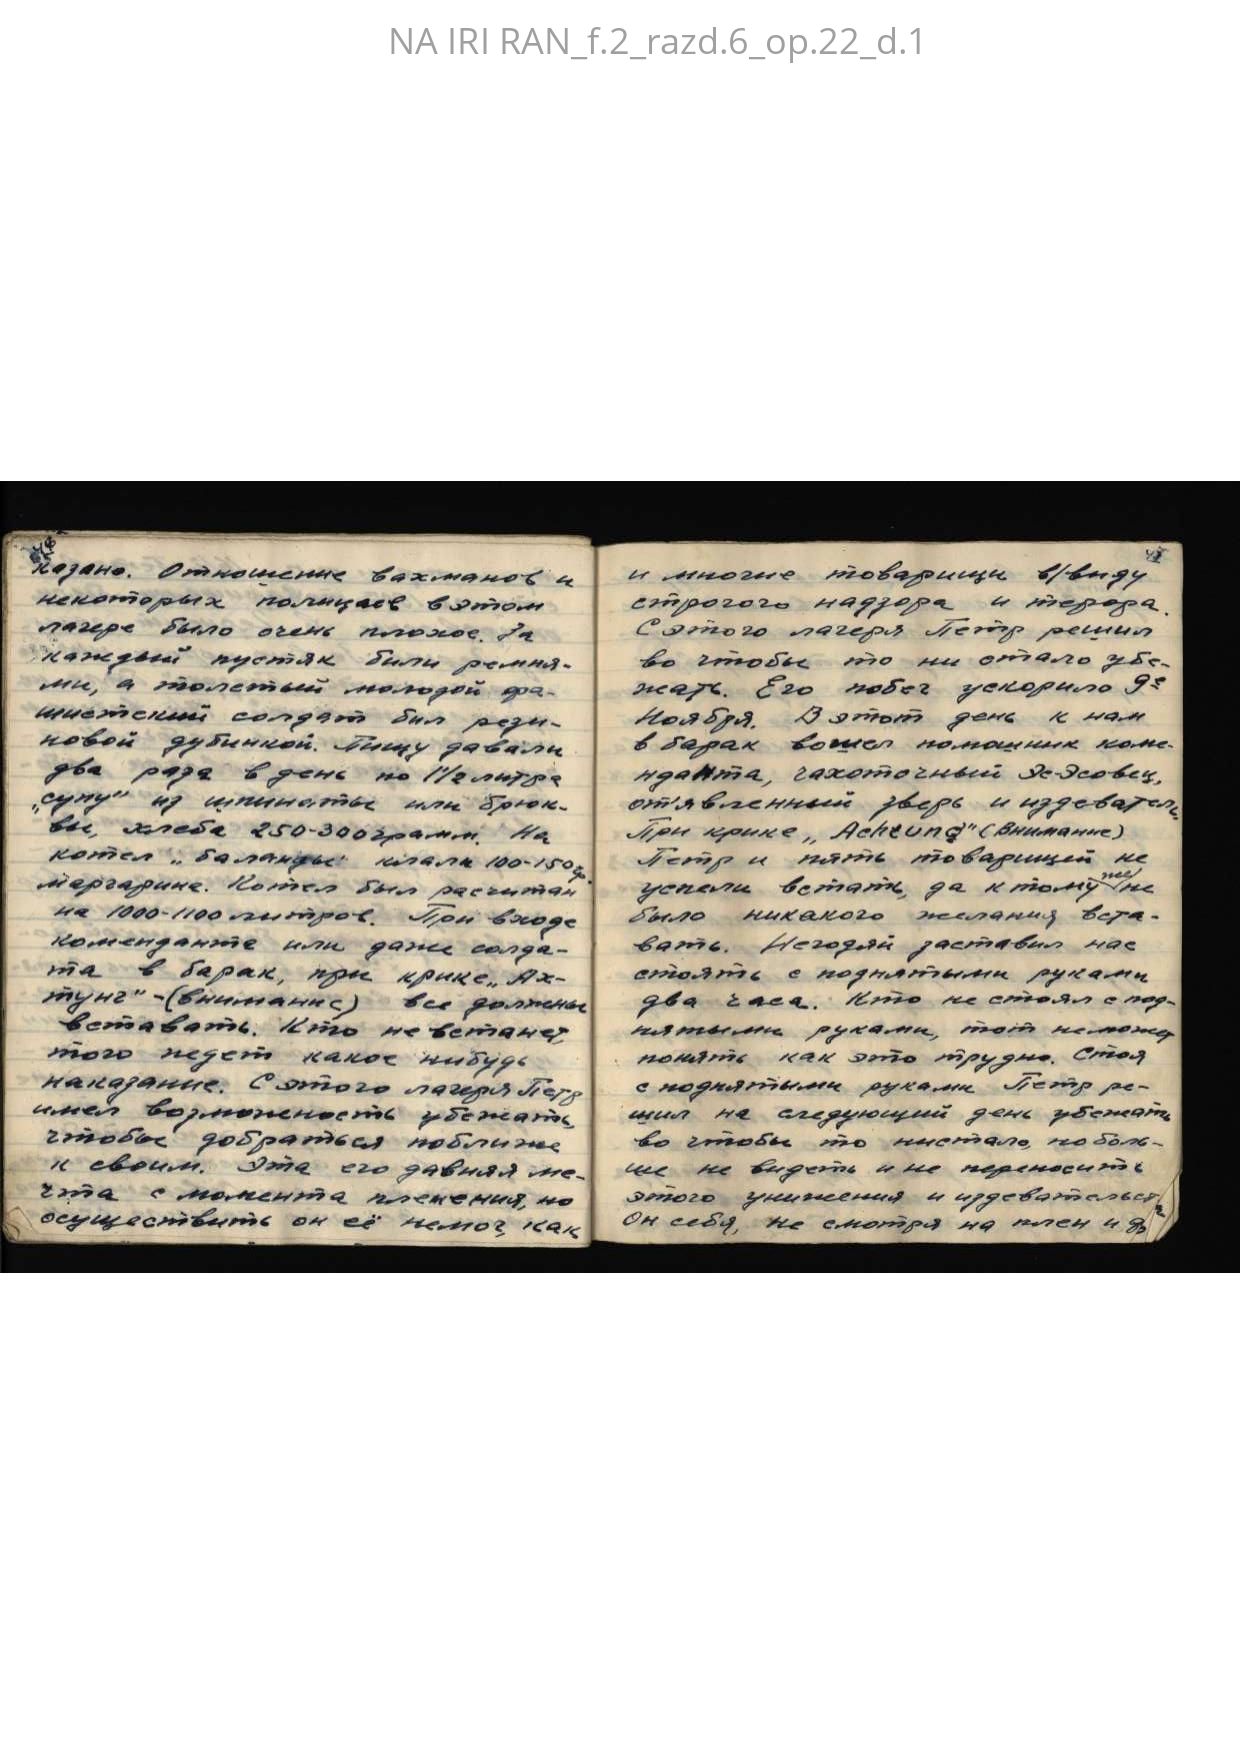 NA IRI RAN_f.2_razd.6_op.22_d.1
48
казано. Отношение вахманов и
некоторых полицаев в этом
лагере было очень плохое. За
каждый пустяк били ремня-
ми, а толстый молодой фа-
шистский солдат бил рези-
новой дубинкой. Пищу давали
два раза в день по 1 1/2 литра
„супу" из шпинаты или брюк-
вы, хлеба 250-300 грамм. На
котел „баланды" клали 100-150 гр.
маргарина. Котел был расчитан
на 1000-1100 литров. При входе
коменданта или даже солда-
та в барак, при крике „Ах-
тунг" - (внимание) все должны
вставать. Кто не встанет,
того ждет какое нибудь
наказание. С этого лагеря Петр
имел возможность убежать,
чтобы добраться поближе
к своим. Эта его давняя ме-
чта с момента пленения, но
осуществить он её немог, как
и многие товарищи в/виду
строгого надзора и терора.
С этого лагеря Петр решил
во чтобы то ни стало убе-
жать. Его побег ускорило 9е
Ноября. В этот день к нам
в барак вошел помошник коме-
нданта, чахоточный Эс-Эсовец,
от'явленный зверь и издеватель.
При крике „Achtung" (внимание)
Петр и пять товарищей не
успели встать, да к тому же не
было никакого желания вста-
вать. Негодяй заставил нас
стоять с поднятыми руками
два часа. Кто не стоял с под-
нятыми руками, тот неможет
понять как это трудно. Стоя
с поднятыми руками Петр ре-
шил на следующий день убежать
во чтобы то нистало, но боль-
ше не видеть и не переносить
этого унижения и издевательств
Он себя, не смотря на плен и